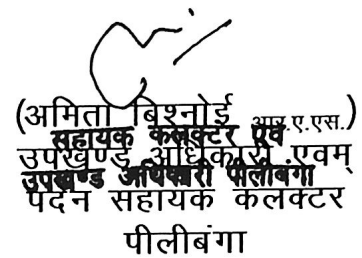 (अमिता बिश्नोई आर.ए.एस.)
सहायक कलक्टर एवं
उपखण्ड अधिकारी एवम्
उपखण्ड अधिकारी पीलीबंगा
पदेन सहायक कलक्टर
पीलीबंगा